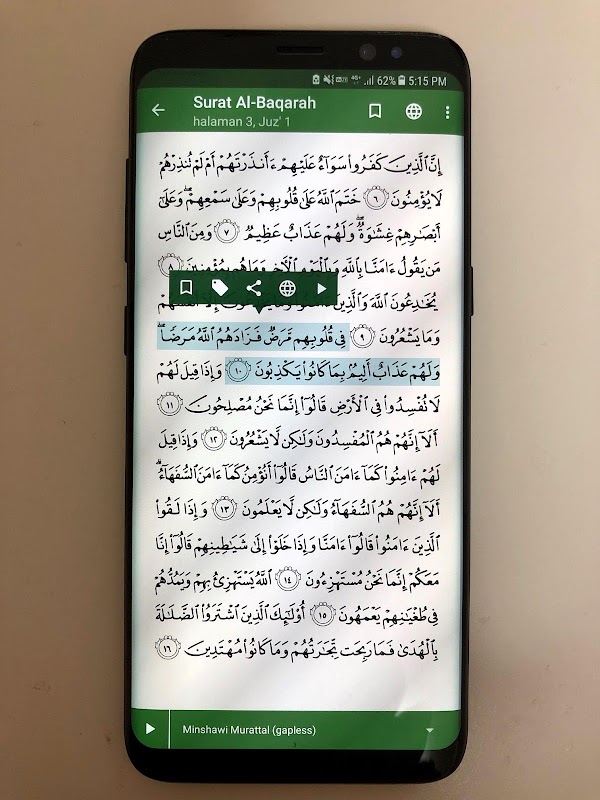 62% 5:15 PM
Surat Al-Baqarah
halaman 3, Juz' 1
إِنَّ ٱلَّذِينَ كَفَرُوا۟ سَوَآءٌ عَلَيْهِمْ ءَأَنذَرْتَهُمْ أَمْ لَمْ تُنذِرْهُمْ
لَا يُؤْمِنُونَ ٦ خَتَمَ ٱللَّهُ عَلَىٰ قُلُوبِهِمْ وَعَلَىٰ سَمْعِهِمْ ۖ وَعَلَىٰٓ
أَبْصَـٰرِهِمْ غِشَـٰوَةٌ ۖ وَلَهُمْ عَذَابٌ عَظِيمٌ ٧ وَمِنَ ٱلنَّاسِ
مَن يَقُولُ ءَامَنَّا بِٱللَّهِ وَبِٱلْيَوْمِ ٱلْـَٔاخِرِ وَمَا هُم بِمُؤْمِنِينَ ٨
يُخَـٰدِعُونَ ٱللَّهَ وَٱلَّذِينَ
وَمَا يَشْعُرُونَ ٩ فِى قُلُوبِهِم مَّرَضٌ فَزَادَهُمُ ٱللَّهُ مَرَضًا ۖ
وَلَهُمْ عَذَابٌ أَلِيمٌۢ بِمَا كَانُوا۟ يَكْذِبُونَ ١٠ وَإِذَا قِيلَ لَهُمْ
لَا تُفْسِدُوا۟ فِى ٱلْأَرْضِ قَالُوٓا۟ إِنَّمَا نَحْنُ مُصْلِحُونَ ١١
أَلَآ إِنَّهُمْ هُمُ ٱلْمُفْسِدُونَ وَلَـٰكِن لَّا يَشْعُرُونَ ١٢ وَإِذَا قِيلَ
لَهُمْ ءَامِنُوا۟ كَمَآ ءَامَنَ ٱلنَّاسُ قَالُوٓا۟ أَنُؤْمِنُ كَمَآ ءَامَنَ ٱلسُّفَهَآءُ ۗ
أَلَآ إِنَّهُمْ هُمُ ٱلسُّفَهَآءُ وَلَـٰكِن لَّا يَعْلَمُونَ ١٣ وَإِذَا لَقُوا۟
ٱلَّذِينَ ءَامَنُوا۟ قَالُوٓا۟ ءَامَنَّا وَإِذَا خَلَوْا۟ إِلَىٰ شَيَـٰطِينِهِمْ قَالُوٓا۟ إِنَّا
مَعَكُمْ إِنَّمَا نَحْنُ مُسْتَهْزِءُونَ ١٤ ٱللَّهُ يَسْتَهْزِئُ بِهِمْ وَيَمُدُّهُمْ
فِى طُغْيَـٰنِهِمْ يَعْمَهُونَ ١٥ أُو۟لَـٰٓئِكَ ٱلَّذِينَ ٱشْتَرَوُا۟ ٱلضَّلَـٰلَةَ
بِٱلْهُدَىٰ فَمَا رَبِحَت تِّجَـٰرَتُهُمْ وَمَا كَانُوا۟ مُهْتَدِينَ ١٦
Minshawi Murattal (gapless)